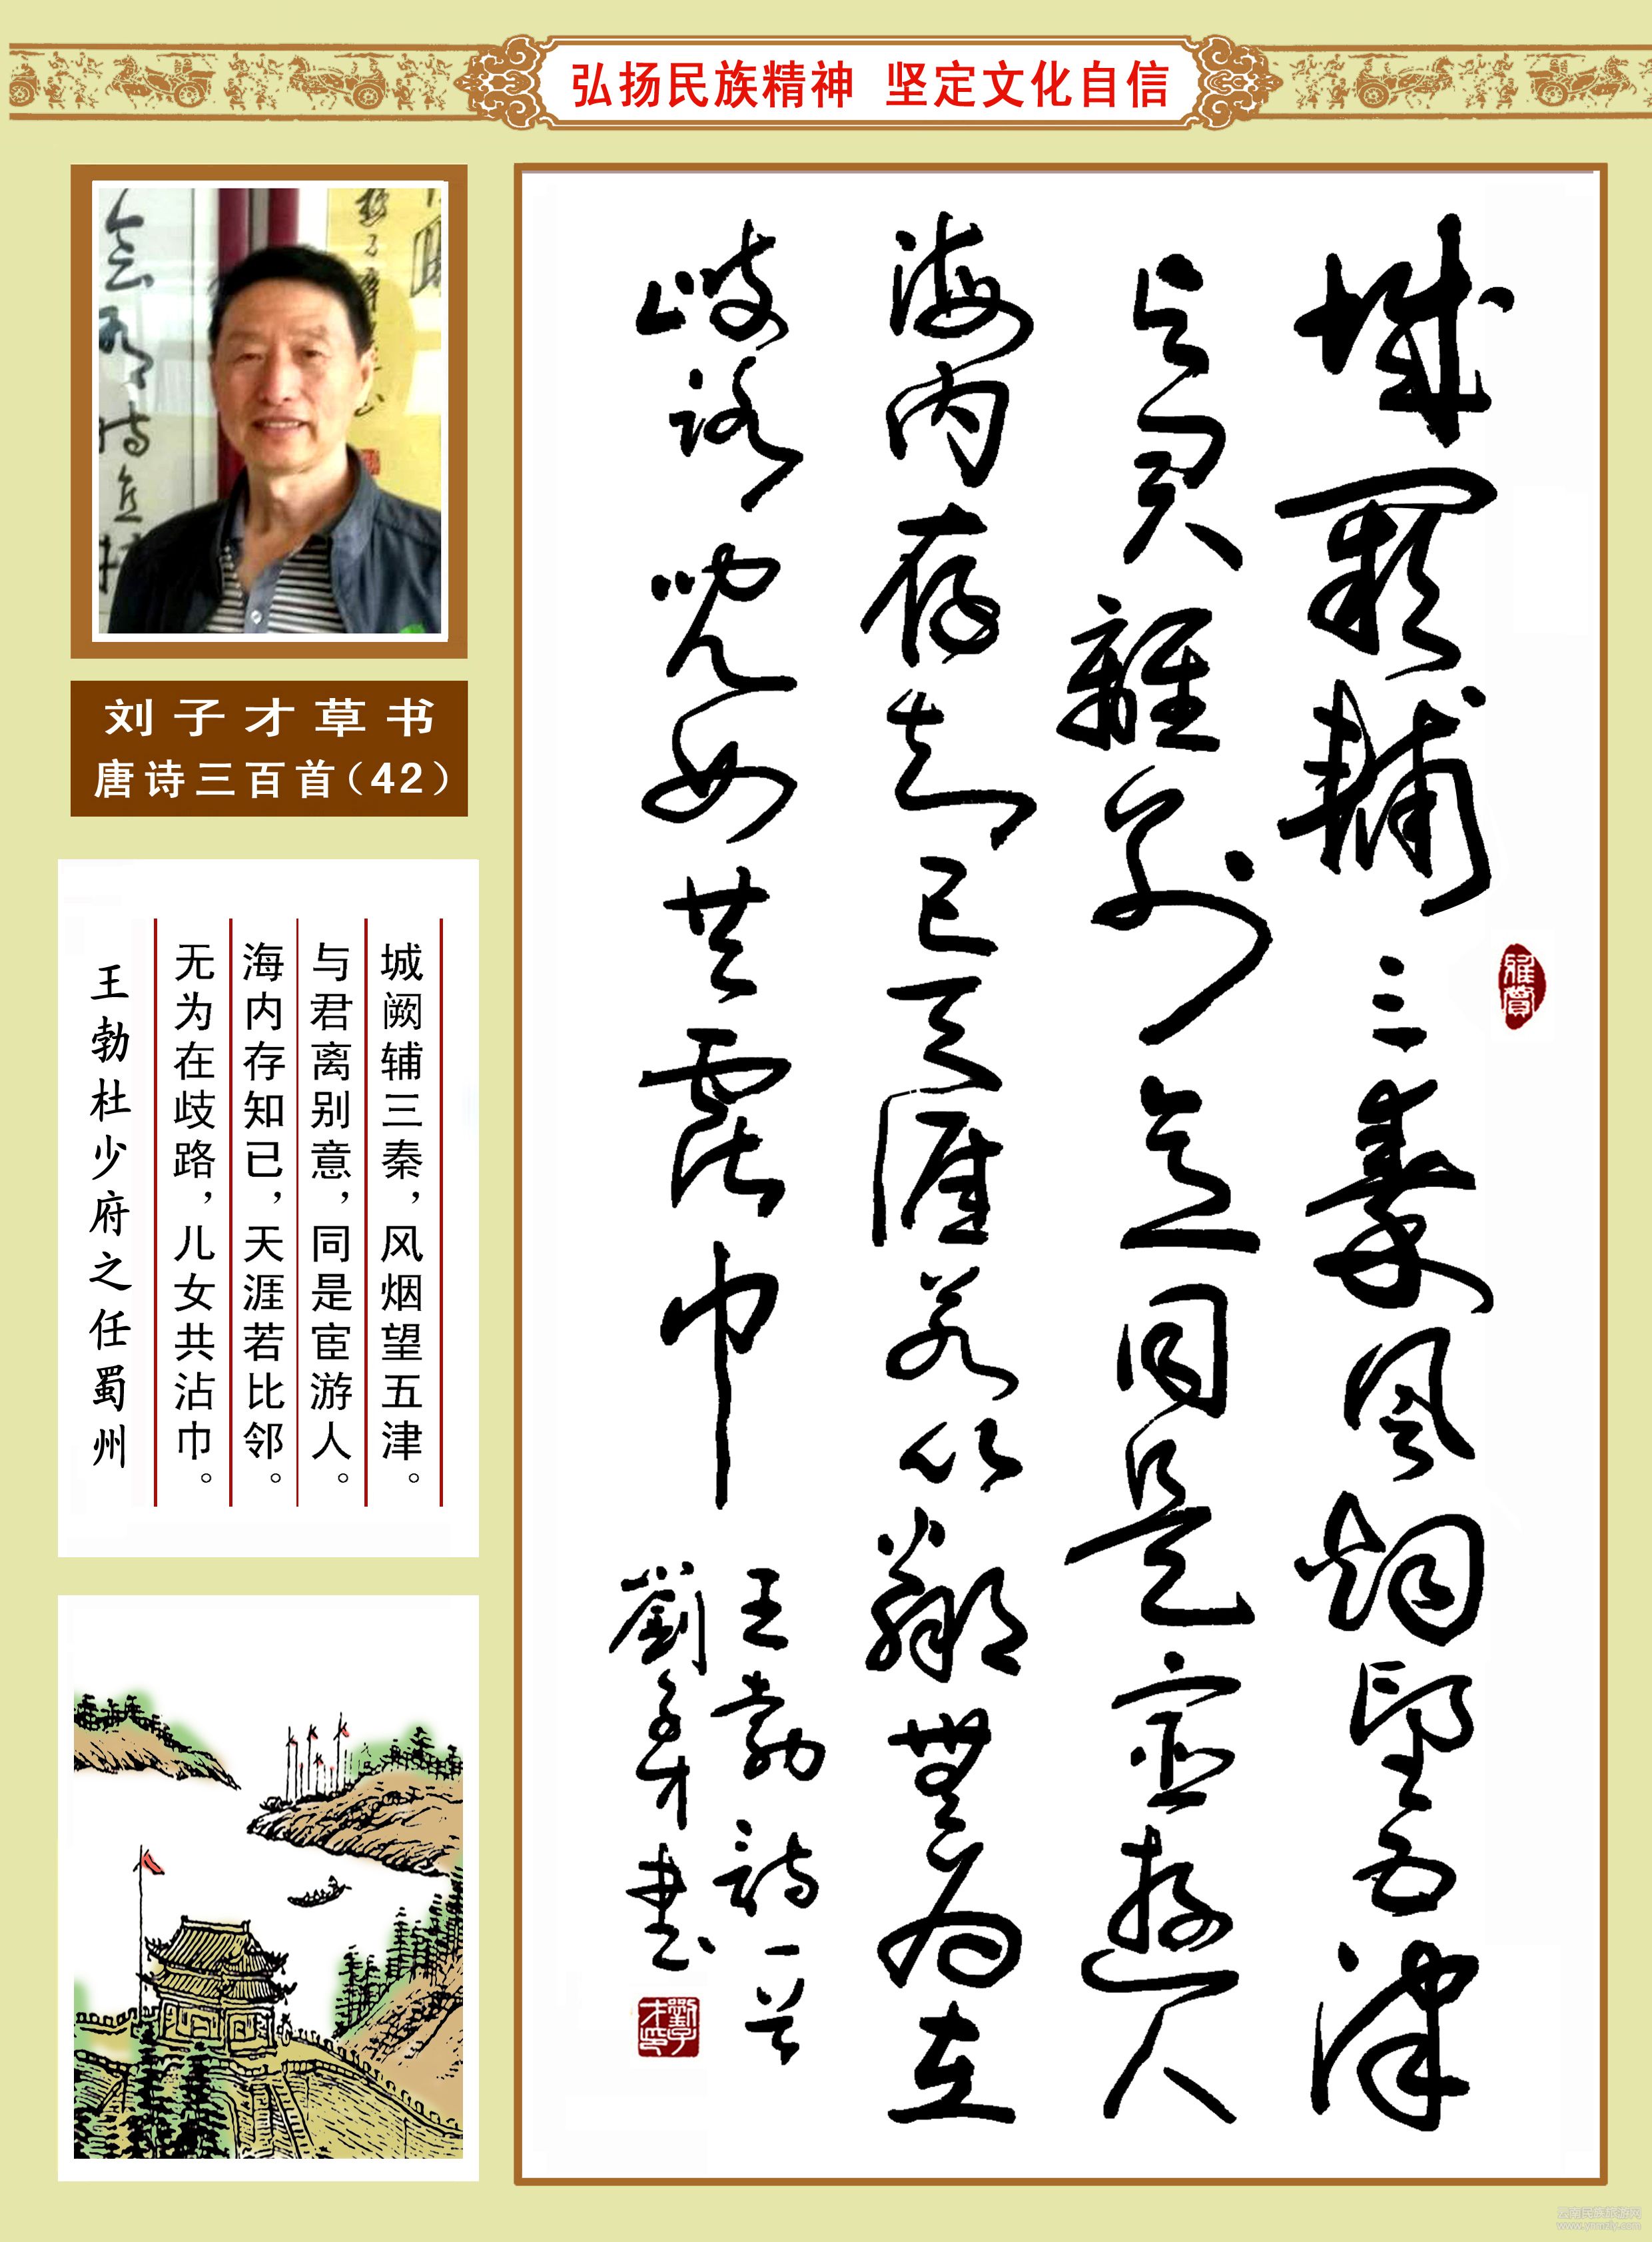 弘扬民族精神 坚定文化自信
刘子才草书
唐诗三百首（42）
城阙辅三秦，风烟望五津。
与君离别意，同是宦游人。
海内存知已，天涯若比邻。
无为在歧路，儿女共沾巾。
王勃杜少府之任蜀州
雅賞
城闕輔三秦風烟望五津
与君離別意同是宦遊人
海内存知已天涯若比鄰無為在
歧路兒女共霑巾
王勃詩一首
劉子才書
劉子才印